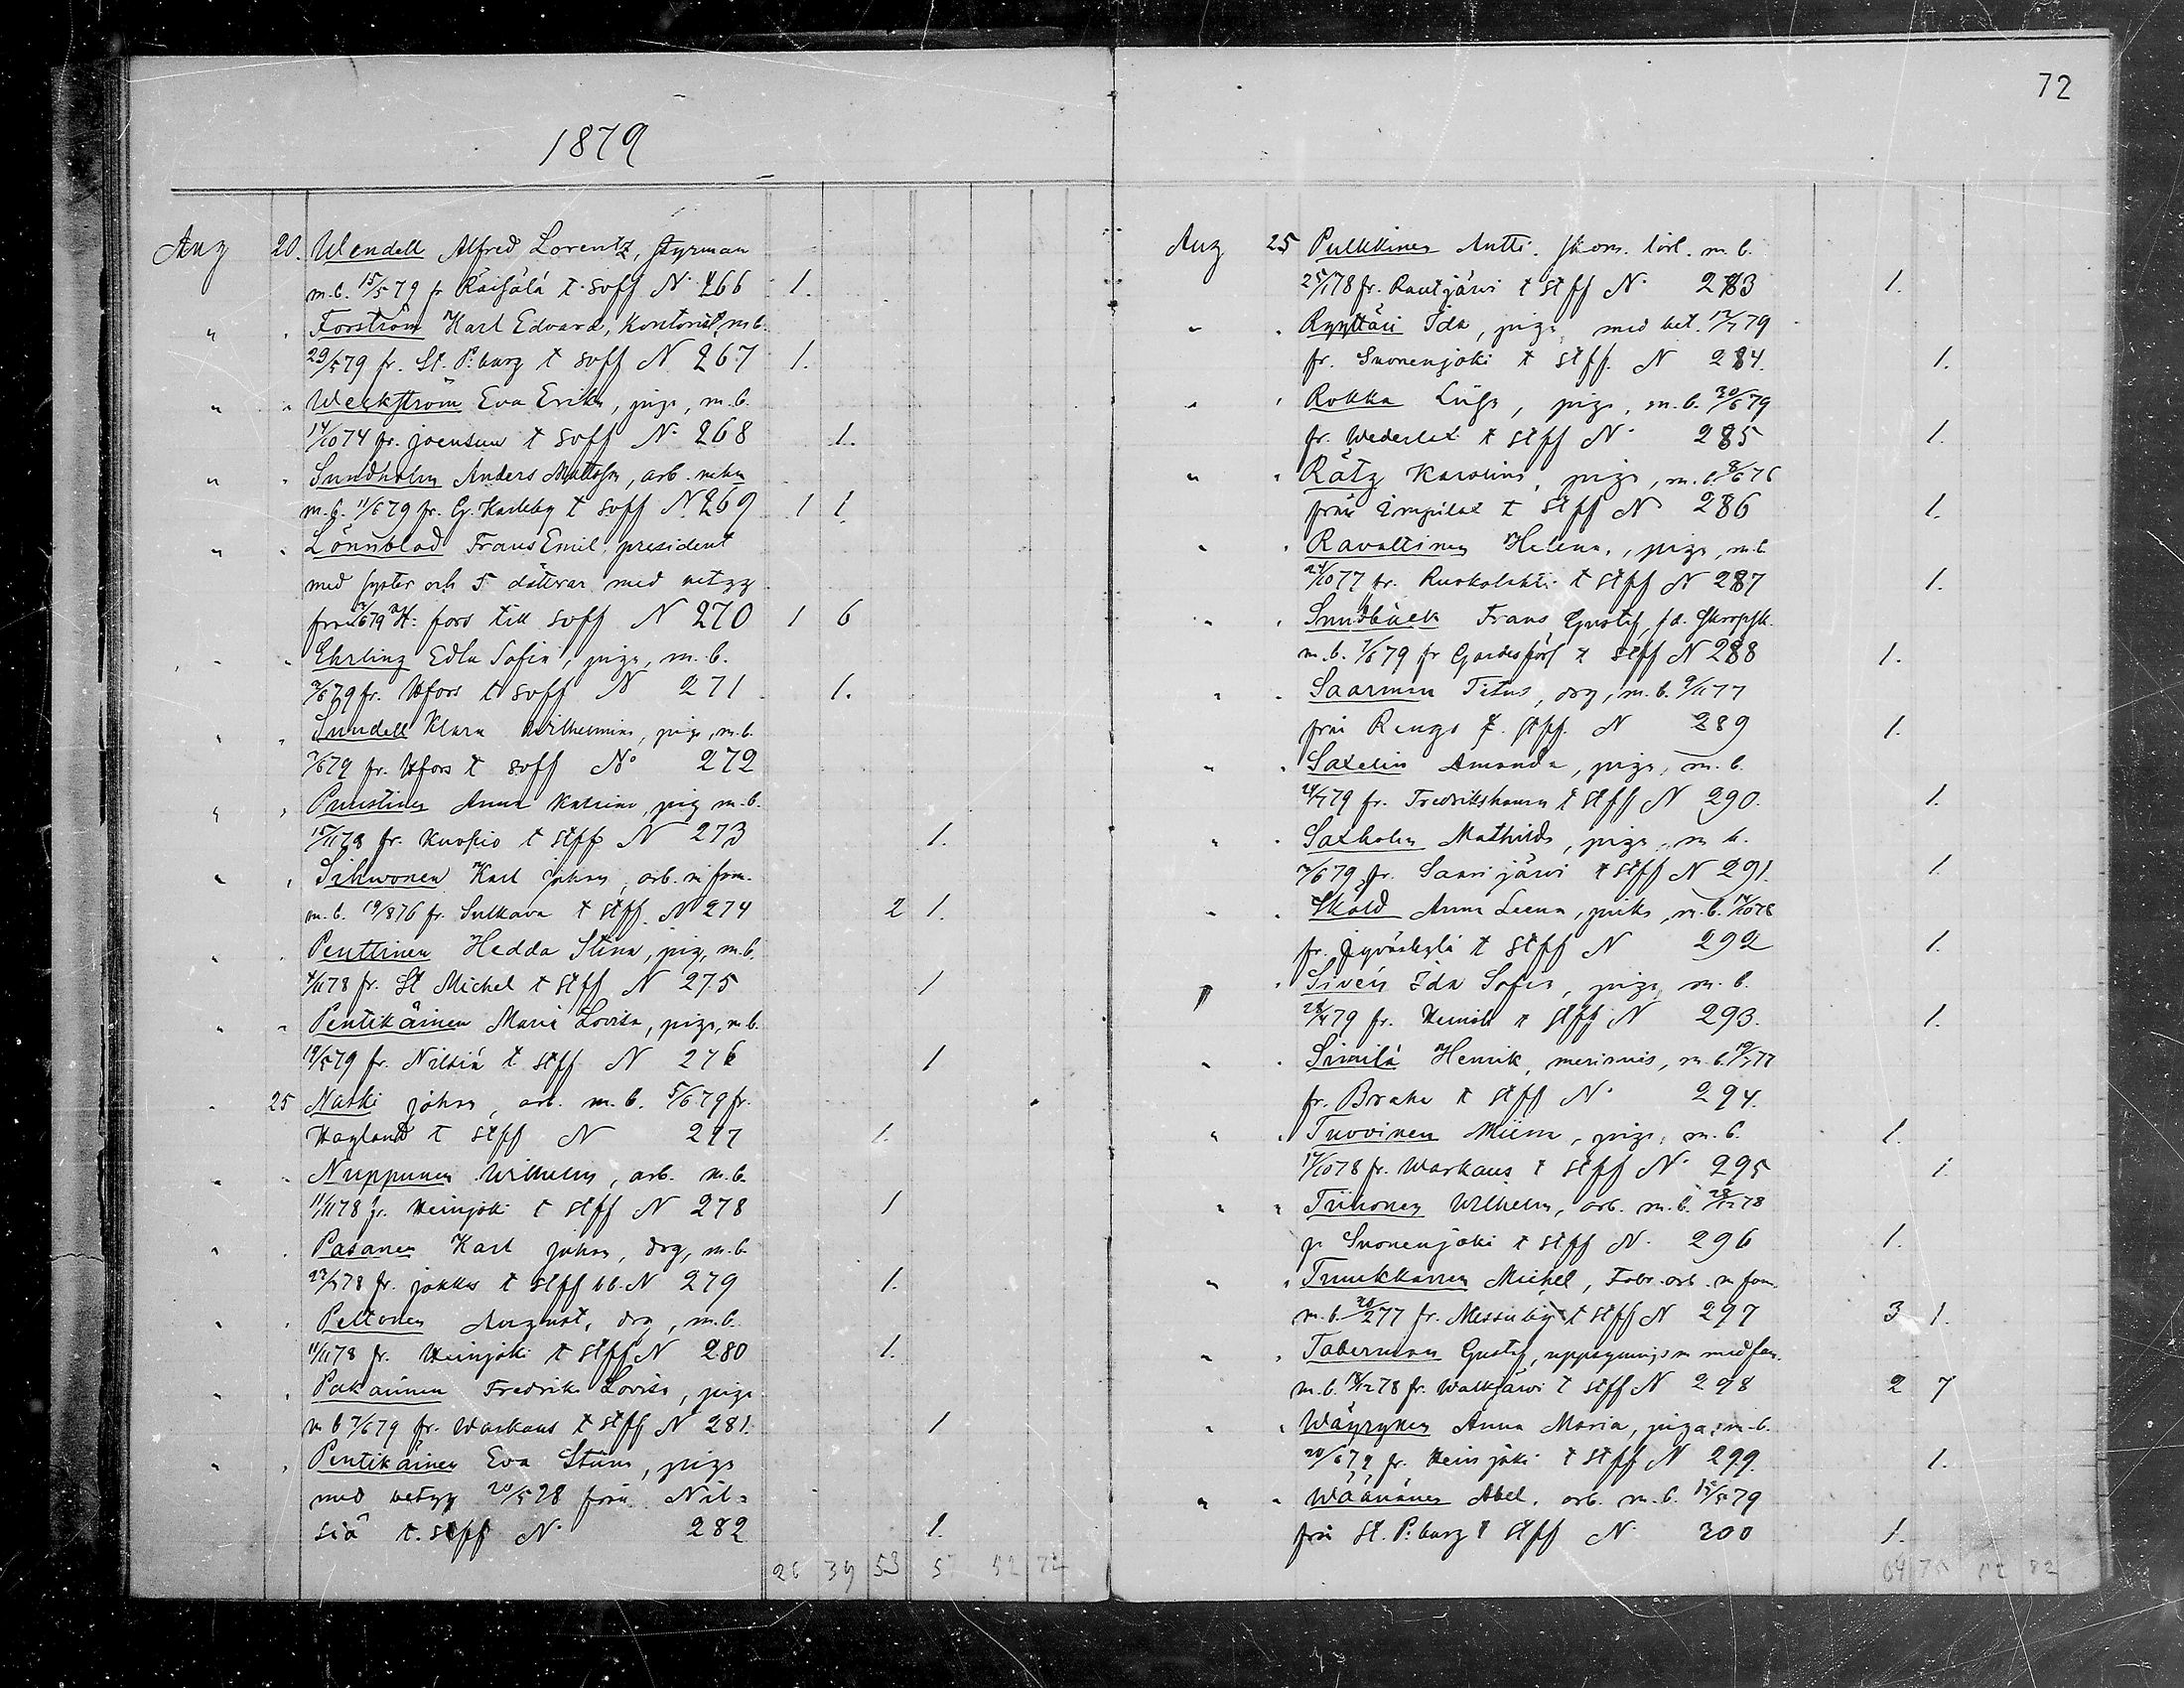 72
1879
Aug 20. Wendell Alfred Lorentz, styrman
m.b. 15/5 79 fr Räisälä t. svff N. 266 1.
" . Forström Karl Edvard, Kontorist, m b.
29/5 79 fr. St. P:burg t svff N 267 1.
" " Weckström Eva Erika, piga, m.b.
14/10 74 fr. joensuu t svff N. 268 1.
" " Sundholm Anders Mattsson, arb.
m.b. 11/6 79 fr. G. Karleby t svff N 269 1 1.
" " Lönnblad Frans Emil, president
med syster och 5 döttrar med betyg
från H:fors till svff N 270 1 6
" " Ehrling Edla Sofia, piga, m.b.
2/6 79 fr. Hfors t svff N 271 1.
" " Sundell Klara Wilhelmina, piga, m.b.
2/6 79 fr. Hfors t svff No 272
" " Puustinen Anna Katrina, pig m.b.
15/11 78 fr. Kuopio t stff N 273 1.
" " Sihwonen Karl johan, arb. m fam.
m.b. 19/8 76 fr. Sulkava t stff. N 274 2 1.
" . Penttinen Hedda Stina, pig, m.b.
4/11 78 fr. St Michel t stff N 275 1
" " Pentikäinen Maria Lovisa, piga, m b.
19/5 79 fr. Nilsiä t stff N 276 1
" 25 Naski johan, arb. m.b. 5/6 79 fr.
Hogland t stff N 277 1.
" " Nuppunen Wilhelm, arb. m.b.
11/11 78 fr. Heinjoki t stff N 278 1
" . Pasanen Karl johan, drg, m.b.
23/7 78 fr. jokkas t stff bb. N 279 1.
" . Peltonen August, drg, m.b.
11/11 78 fr. Heinjoki t stff N 280 1.
" . Pakarinen Fredrika Lovisa, piga
m b 7/6 79 fr. Warkaus t stff N 281. 1
" . Pentikäinen Eva Stina, piga
med betyg 20/5 78 från Nil-
siä t. stff N. 282 1.
26 39 53 57 52 72
Aug 25 Pulkkinen Antti. m.b.
25/1 78 fr. Rautjärvi t stff N. 283 1.
" . Ryyttäri Ida, piga, med bet. 12/7 79
fr. Suonenjoki t stff. N 284. 1.
" . Rokka Liisa, piga, m.b. 30/6 79
fr. Wederlax t stff N. 285 1.
" . Rätz Karolina, piga, m.b. 8/6 76
från Impilax t stff N 286 1.
" . Ravattinen Helena, piga, m.b
24/10 77 fr. Ruokolahti t stff N 287 1.
" . Sundbäck Frans Gustaf, fd.
m.b. 7/6 79 fr Gardesförs t stff N 288 1.
" . Saarinen Titus, drg, m.b. 9/11 77
från Rengo t. stff. N 289 1.
" . Saxelin Amanda, piga, m.b.
24/7 79 fr. Fredrikshamn t stff N 290. 1.
" . Saxholm Mathilda, piga, m b.
7/6 79 fr. Saarijärvi t stff N 291. 1.
" . Sköld Anna Leena, m.b. 14/10 78
fr. Jyväskylä t stff N 292 1.
" Sivén Ida Sofia, piga, m.b.
79 fr. Heinola t stff N 293. 1.
" . Simila Henrik, merimies, m.b. 77
fr. Brahe t stff N. 294.
" . Tuovinen Miina, piga, m.b. 1.
17/10 78 fr. Warkaus t stff N. 295 1.
" " Tiihonen Wilhelm, arb. m.b. 28/12 78
fr Suonenjoki t stff N. 296 1.
" " Tuuukkanen Michel, Fabr. arb. m fam.
m.b. 77 fr. Messuby t stff N 297 3 1.
" . Taberman Gustaf, med fam.
m.b. 18/12 78 fr. Walkjärvi t stff N 298 2 7
" . Wäyrynen Anna Maria, piga, m.b.
20/6 79 fr. Heinjoki t stff N 299. 1.
" . Wäänänen Abel, arb. m.b. 15/5 79
från St. P:burg t stff N. 300 1.